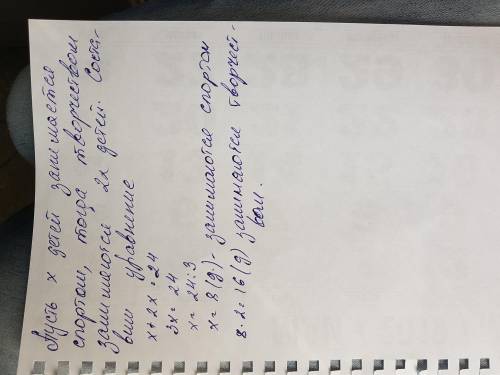 Пусть х детей занимается
спортом, тогда творчеством
занимаются 2х детей. Соста-
вим уравнение
х+2х=24
3х=24
х=24:3
х=8(д.)- занимаются спортом
8·2=16(д) занимаются творчест-
вом.